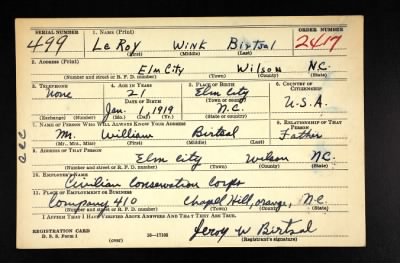 SERIAL NUMBER 1. NAME (Print) ORDER NUMBER
499 Le Roy Wink Birtsal 2417
(First) (Middle) (Last)
2. ADDRESS (Print)
Elm City Wilson N.C.
(Number and street or R. F. D. number) (Town) (County) (State)
3. TELEPHONE 4. AGE IN YEARS 5. PLACE OF BIRTH 6. COUNTRY OF CITIZENSHIP
None 21 Elm City
DATE OF BIRTH (Town or county)
Jan. 1 1919 N.C. U.S.A.
(Exchange) (Number) (Mo.) (Day) (Yr.) (State or country)
7. NAME OF PERSON WHO WILL ALWAYS KNOW YOUR ADDRESS 8. RELATIONSHIP OF THAT PERSON
M. William Birtsal Father
(Mr., Mrs., Miss) (First) (Middle) (Last)
9. ADDRESS OF THAT PERSON
Elm City Wilson NC.
(Number and street or R. F. D. number) (Town) (County) (State)
10. EMPLOYER'S NAME
Civilian Conservation Corps
11. PLACE OF EMPLOYMENT OR BUSINESS
Company 410 Chapel Hill, orange, N.C.
(Number and street or R. F. D. number) (Town) (County) (State)
I AFFIRM THAT I HAVE VERIFIED ABOVE ANSWERS AND THAT THEY ARE TRUE.
REGISTRATION CARD
D. S. S. Form 1 (over) 16-17105 Leroy W Birtsal
(Registrant's signature)
CCC